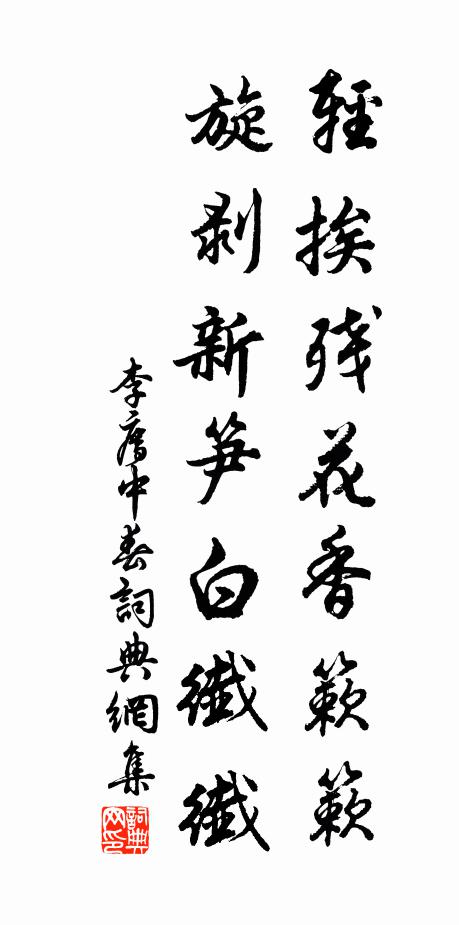 輕挨残花香簌簌
旋剥新笋白纖纖
李膺中春詞典網集
詞典网印